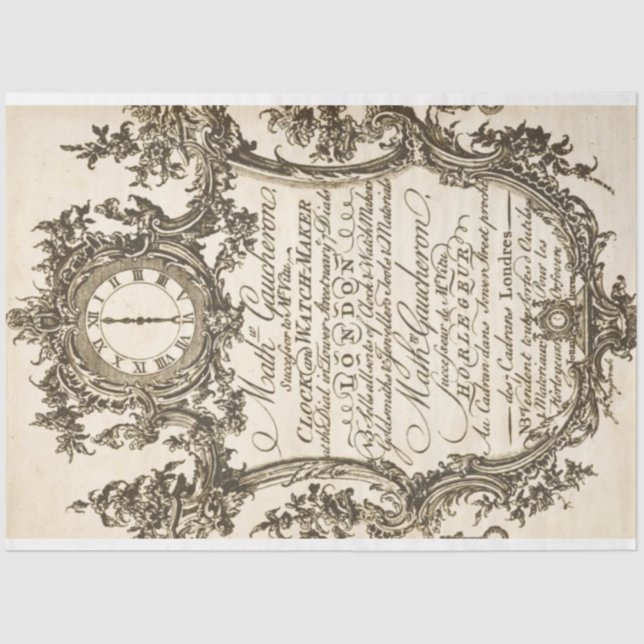 Math.w Gaucheron,
Successor to Mr Vitu
CLOCK & WATCH-MAKER
at the Dial in Tower Street near ye 7 Dials
LONDON
NB Sells all sorts of Clock & Watch Makers
Goldsmiths & Jewellers Tools & Materials
Math.w Gaucheron,
Successeur de Mr Vitu
HORLOGEUR
au Cadran dans Touer Street proch
des 7 Cadrans Londres
NB Vendent toutes sortes d'outils
Materiaux Pour les
Horlogeurs Orfevres
XII
I
II
III
IIII
V
VI
VII
VIII
IX
X
XI